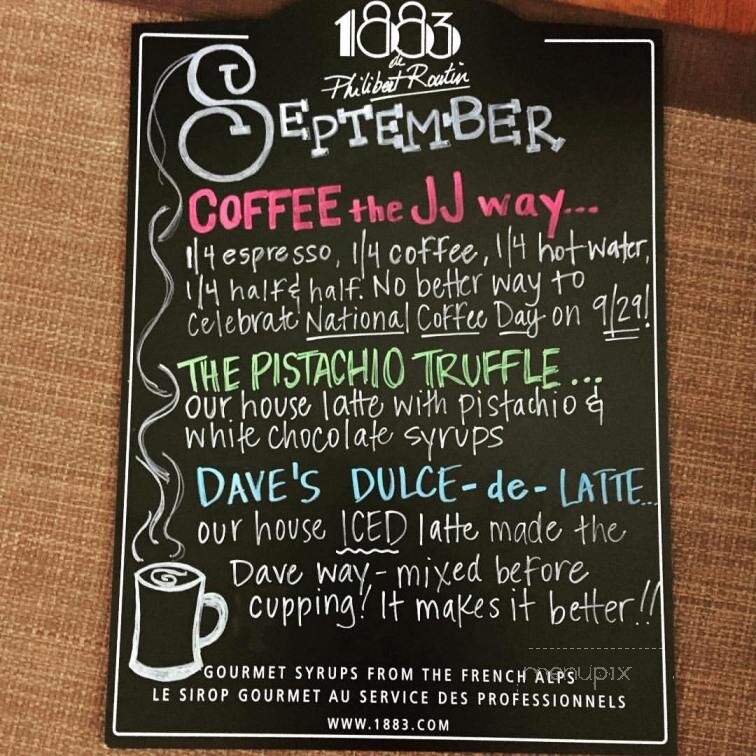 1883
de
Philibert Routin
SEPTEMBER
COFFEE the JJ way...
1/4 espresso, 1/4 coffee, 1/4 hot water,
1/4 half & half. No better way to
celebrate National Coffee Day on 9/29!
THE PISTACHIO TRUFFLE...
our house latte with pistachio &
white chocolate syrups
DAVE'S DULCE-de-LATTE...
our house ICED latte made the
Dave way - mixed before
cupping! It makes it better!!
menupix
GOURMET SYRUPS FROM THE FRENCH ALPS
LE SIROP GOURMET AU SERVICE DES PROFESSIONNELS
WWW.1883.COM